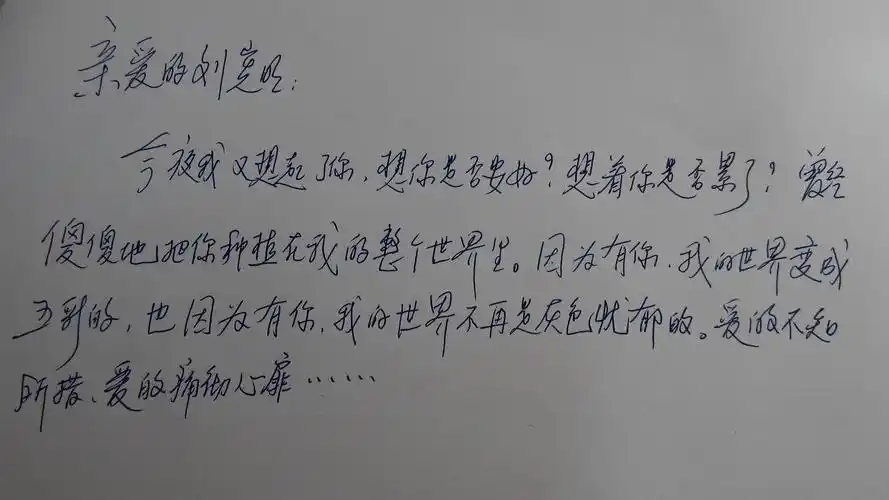 亲爱的刘竞旼：
今夜我又想起了你，想你是否安好？想着你是否累了？曾经
傻傻地把你种植在我的整个世界里。因为有你，我的世界变成
五彩的，也因为有你，我的世界不再是灰色忧郁的。爱的不知
所措、爱的痛彻心扉……